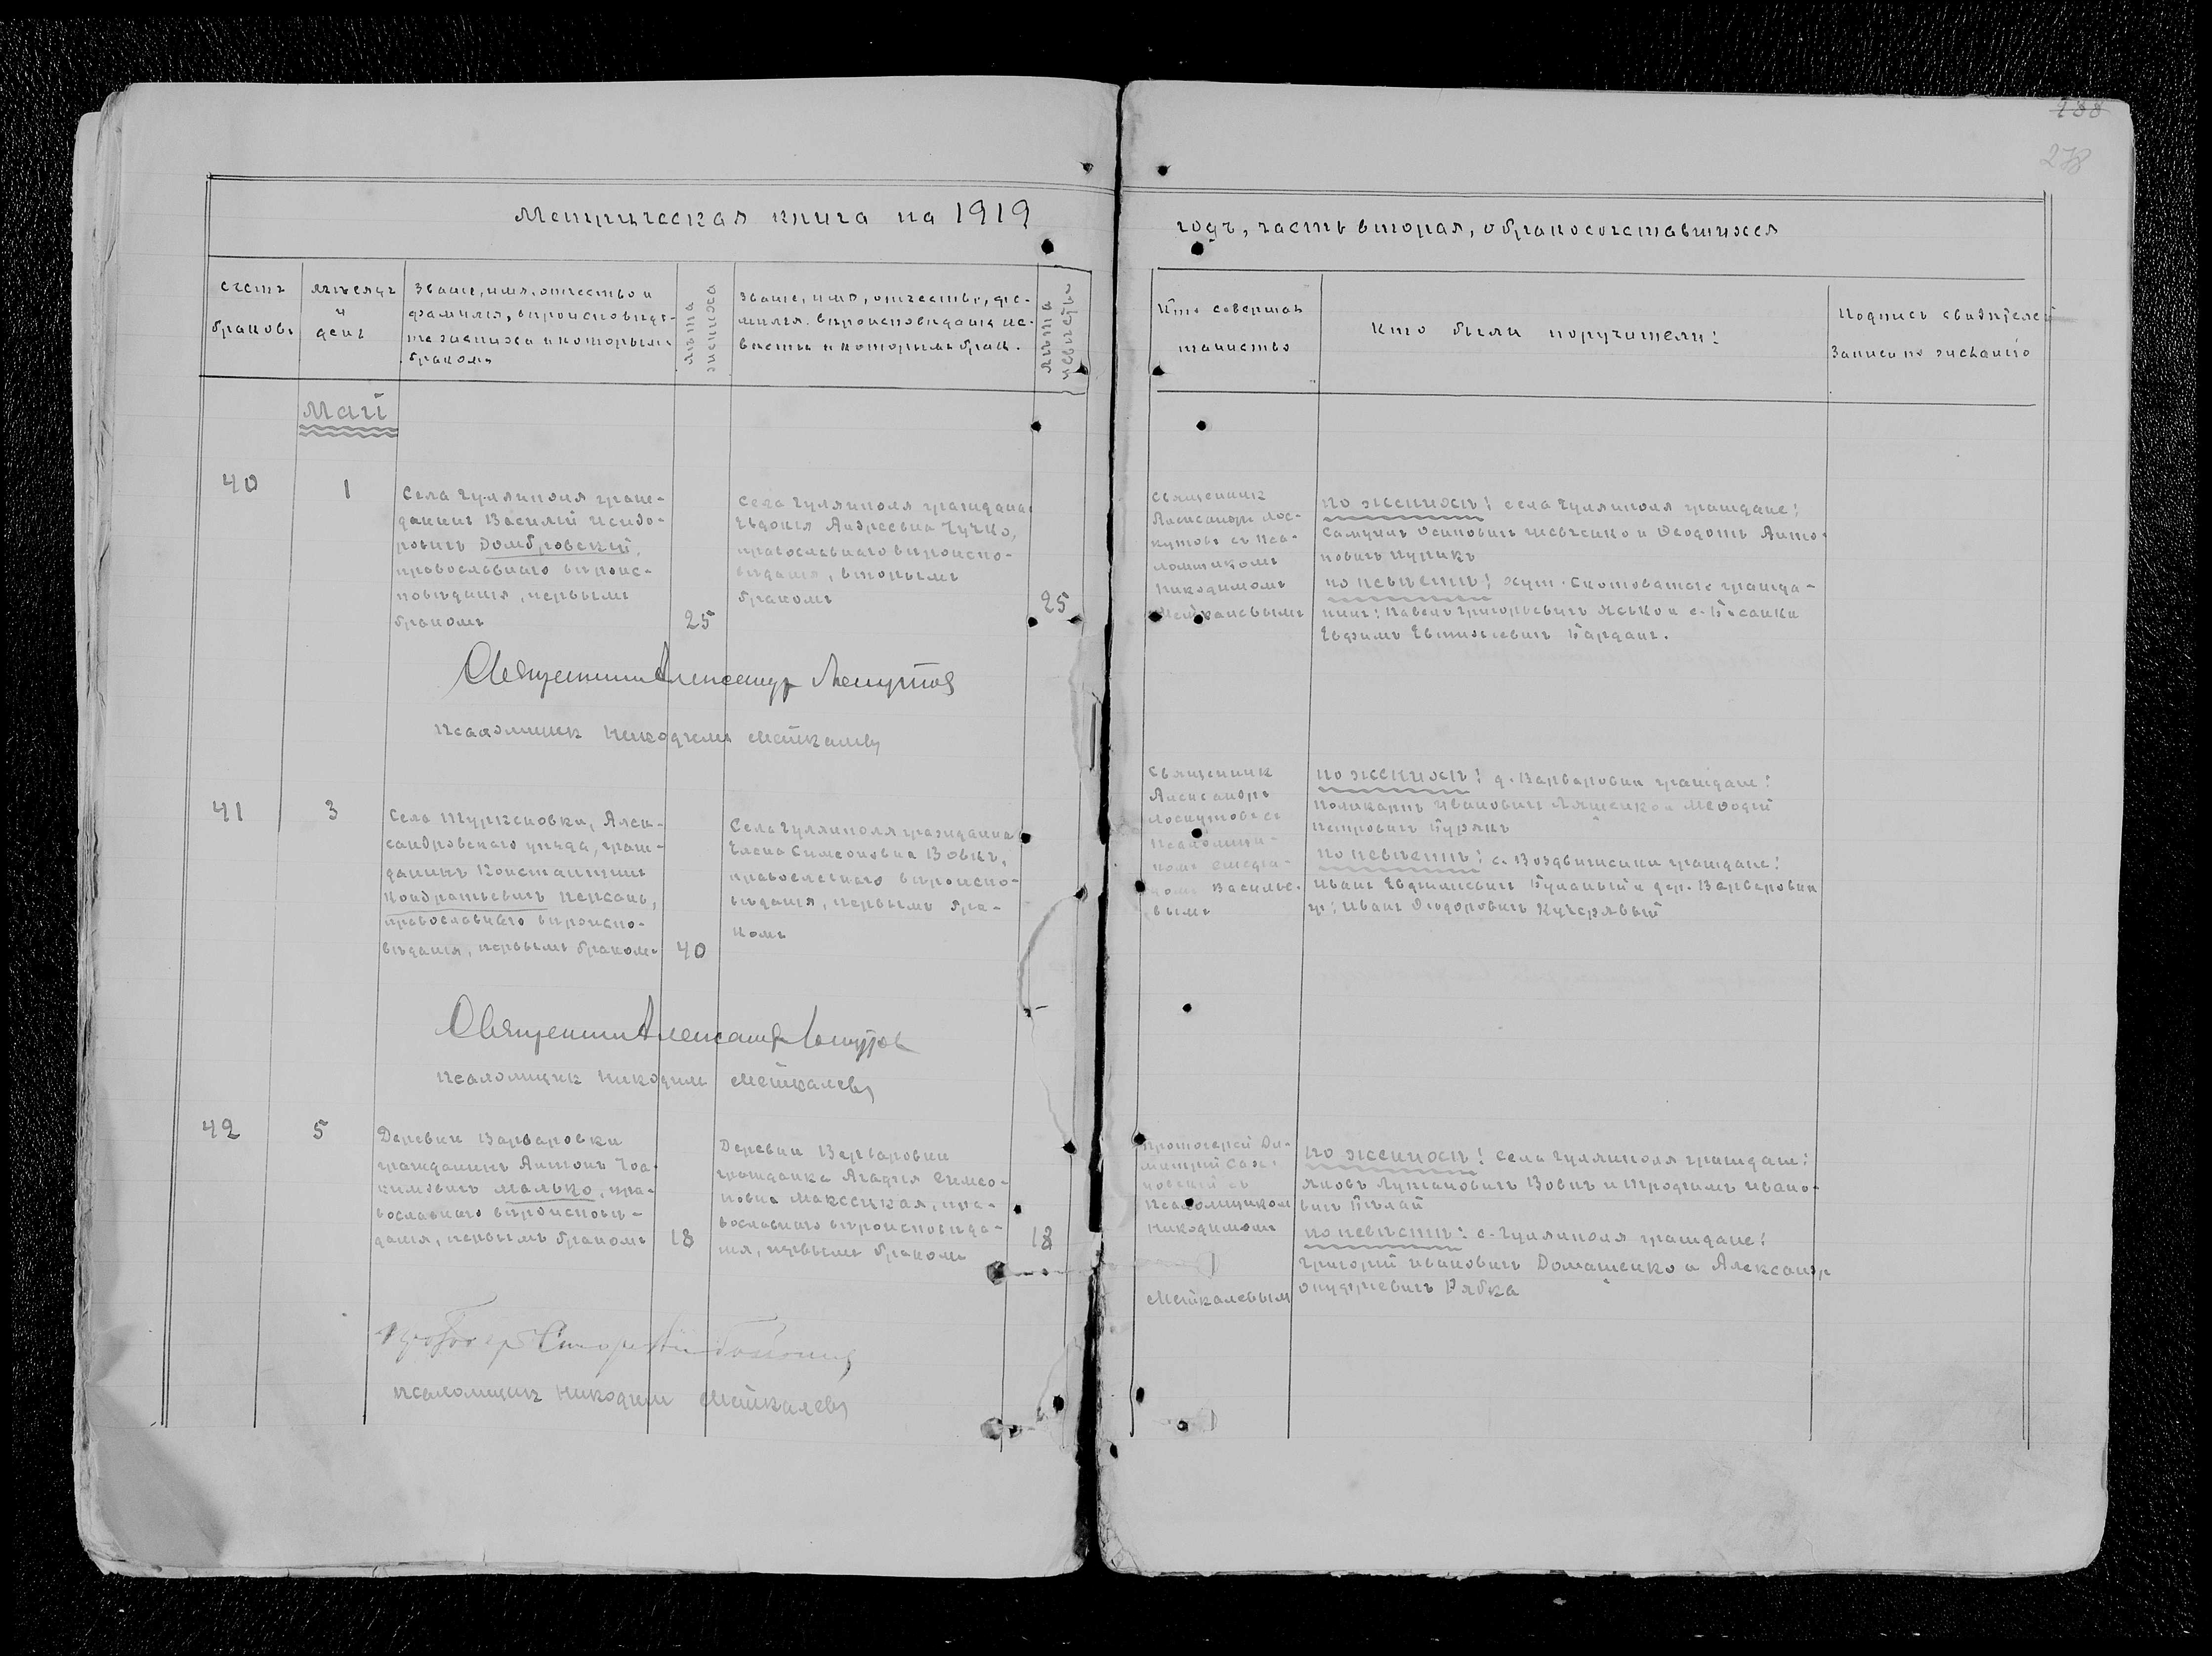 238
278
Метрическая книга на 1919
годъ, часть вторая, о бракосочетавшихся
Счетъ браковъ
Мѣсяцъ и день
Званіе, имя, отчество и
фамилія, вѣроисповѣда-
ніе жениха и которымъ
бракомъ
Лѣта жениха
Званіе, имя, отчество, фа-
милія, вѣроисповѣданіе не-
вѣсты и которымъ брак.
Лѣта невѣсты
Кто совершалъ
таинство
Кто были поручители:
Подпись свидѣтелей
записи по желанію
Май
40
1
Села Гуляйполя граж-
данинъ Василій Исидо-
ровичъ Домбровскій,
православнаго вѣроис-
повѣданія, первымъ
бракомъ
25
Села Гуляйполя гражданка
Евдокія Андреевна Чучко,
православнаго вѣроиспо-
вѣданія, вторымъ
бракомъ
25
Священникъ
Александръ Лос-
кутовъ съ пса-
ломщикомъ
Никодимомъ
Мейкалевымъ
по женихѣ: села Гуляйполя граждане:
Самуилъ Осиповичъ Шевченко и Ѳеодотъ Анто-
новичъ Куникъ
по невѣстѣ: хут. Скотоватаго гражда-
нинъ: Павелъ Григорьевичъ Ясько и с.
Евфимъ Евтихіевичъ Барданъ.
Священникъ Александръ Лоскутовъ
псаломщикъ Никодимъ Мейкалевъ
41
3
Села Туркеновки, Алек-
сандровскаго уѣзда, граж-
данинъ Константинъ
Кондратьевичъ
православнаго вѣроиспо-
вѣданія, первымъ бракомъ
40
Села Гуляйполя гражданка
Елена Симеоновна Вовкъ,
православнаго вѣроиспо-
вѣданія, первымъ бра-
комъ
Священникъ
Александръ
Лоскутовъ съ
псаломщи-
комъ
Василье-
вымъ
по женихѣ: д. Варваровки граждане:
Поликарпъ Ивановичъ Ляшенко и Меѳодій
Петровичъ Бурякъ
по невѣстѣ: с. Воздвиженки граждане:
Иванъ Евфиміевичъ Буланый и дер. Варваровки
гр: Иванъ Ѳеодоровичъ Кучерявый
Священникъ Александръ Лоскутовъ
псаломщикъ Никодимъ Мейкалевъ
42
5
Деревни Варваровки
гражданинъ Антонъ Іоа-
кимовичъ Малько, пра-
вославнаго вѣроисповѣ-
данія, первымъ бракомъ
18
Деревни Варваровки
гражданка Агафія Симео-
новна Макселкая, пра-
вославнаго вѣроисповѣда-
нія, первымъ бракомъ
18
Протоіерей Ди-
митрій Сах-
новскій съ
псаломщикомъ
Никодимомъ
Мейкалевымъ
по женихѣ: села Гуляйполя граждане:
Яковъ Лукіановичъ Вовкъ и Трофимъ Ивано-
вичъ Бѣлай
по невѣстѣ: с. Гуляйполя граждане:
Григорій Ивановичъ Домашенко и Александр
Онуфріевичъ Рябка
псаломщикъ Никодимъ Мейкалевъ